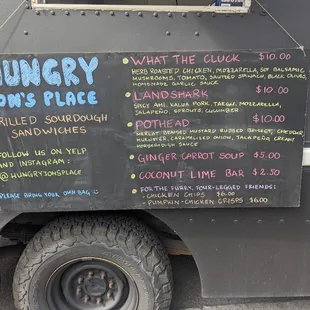 HUNGRY
JON'S PLACE
GRILLED SOURDOUGH
SANDWICHES
FOLLOW US ON YELP
AND INSTAGRAM:
@HUNGRYJONSPLACE
PLEASE BRING YOUR OWN BAG
WHAT THE CLUCK $10.00
HERB ROASTED CHICKEN, MOZZARELLA, BALSAMIC
MUSHROOMS, TOMATO, SAUTEED SPINACH, BLACK OLIVES,
HOMEMADE GARLIC SAUCE
LANDSHARK $10.00
SPICY AHI, KALUA PORK, MOZZARELLA,
JALAPEÑO, SPROUTS, CUCUMBER
POTHEAD $10.00
MERLOT MUSTARD RUBBED BRISKET, CHEDDAR,
CARAMELIZED ONION, JALAPEÑO CREAM
HORSERADISH SAUCE
GINGER CARROT SOUP $5.00
COCONUT LIME BAR $2.50
FOR THE FURRY, FOUR-LEGGED FRIENDS:
- CHICKEN CHIPS $6.00
- PUMPKIN-CHICKEN CRISPS $6.00